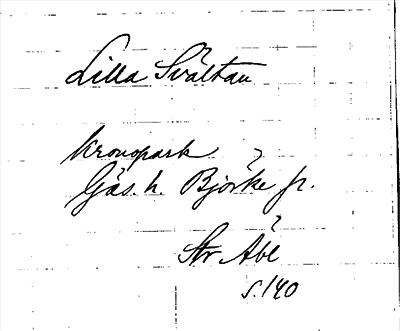 Lilla Svältan
kronopark
Gäs. h. Björke fr.
Str Åbl
s. 140